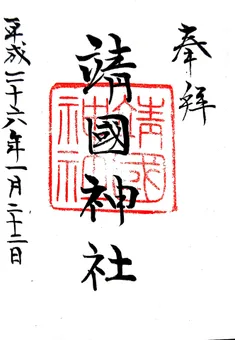 奉拝
靖國神社
靖国神社
平成二十六年一月二十二日